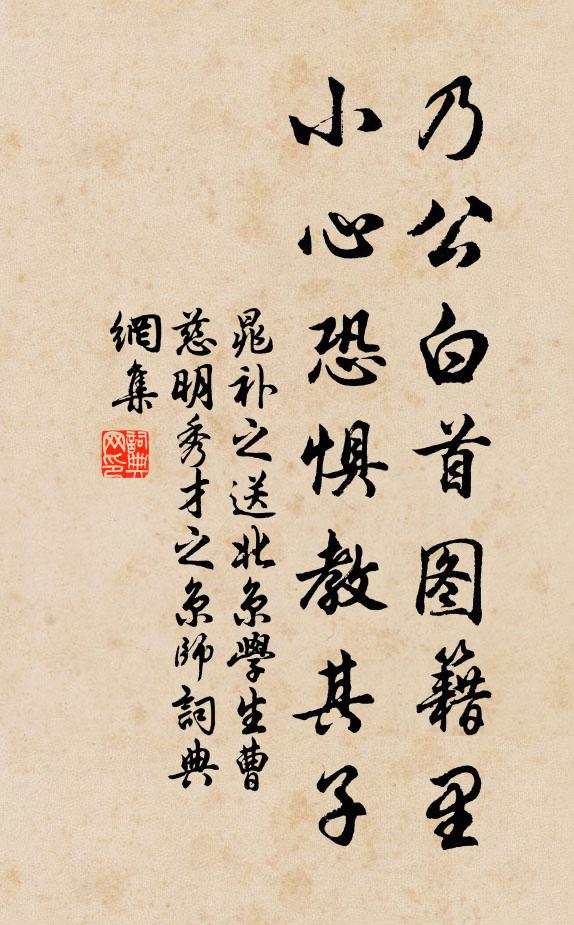 乃公白首图籍里
小心恐惧教其子
晁补之送北京學生曹
慈明秀才之京師詞典
網集
詞典
网印